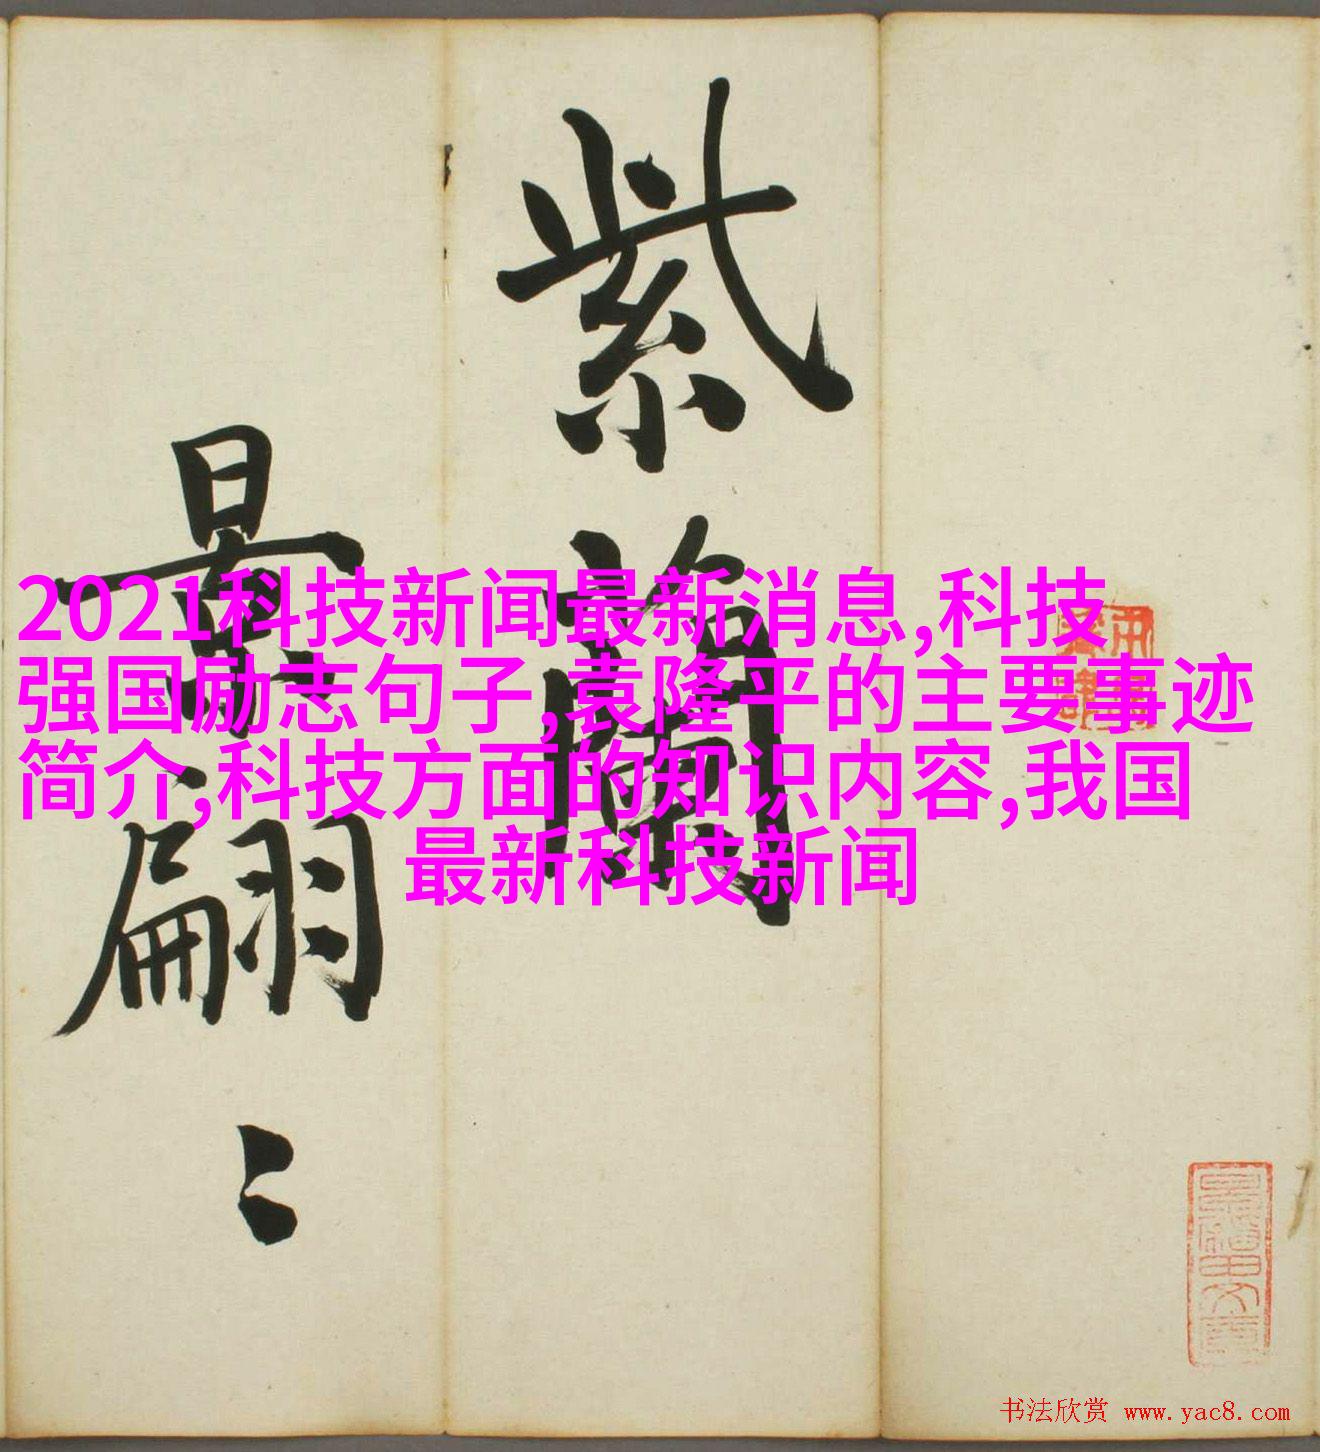 紫蘭
景翩〻
2021科技新闻最新消息,科技
强国励志句子,袁隆平的主要事迹
简介,科技方面的知识内容,我国
最新科技新闻
书法欣赏 www.yac8.com